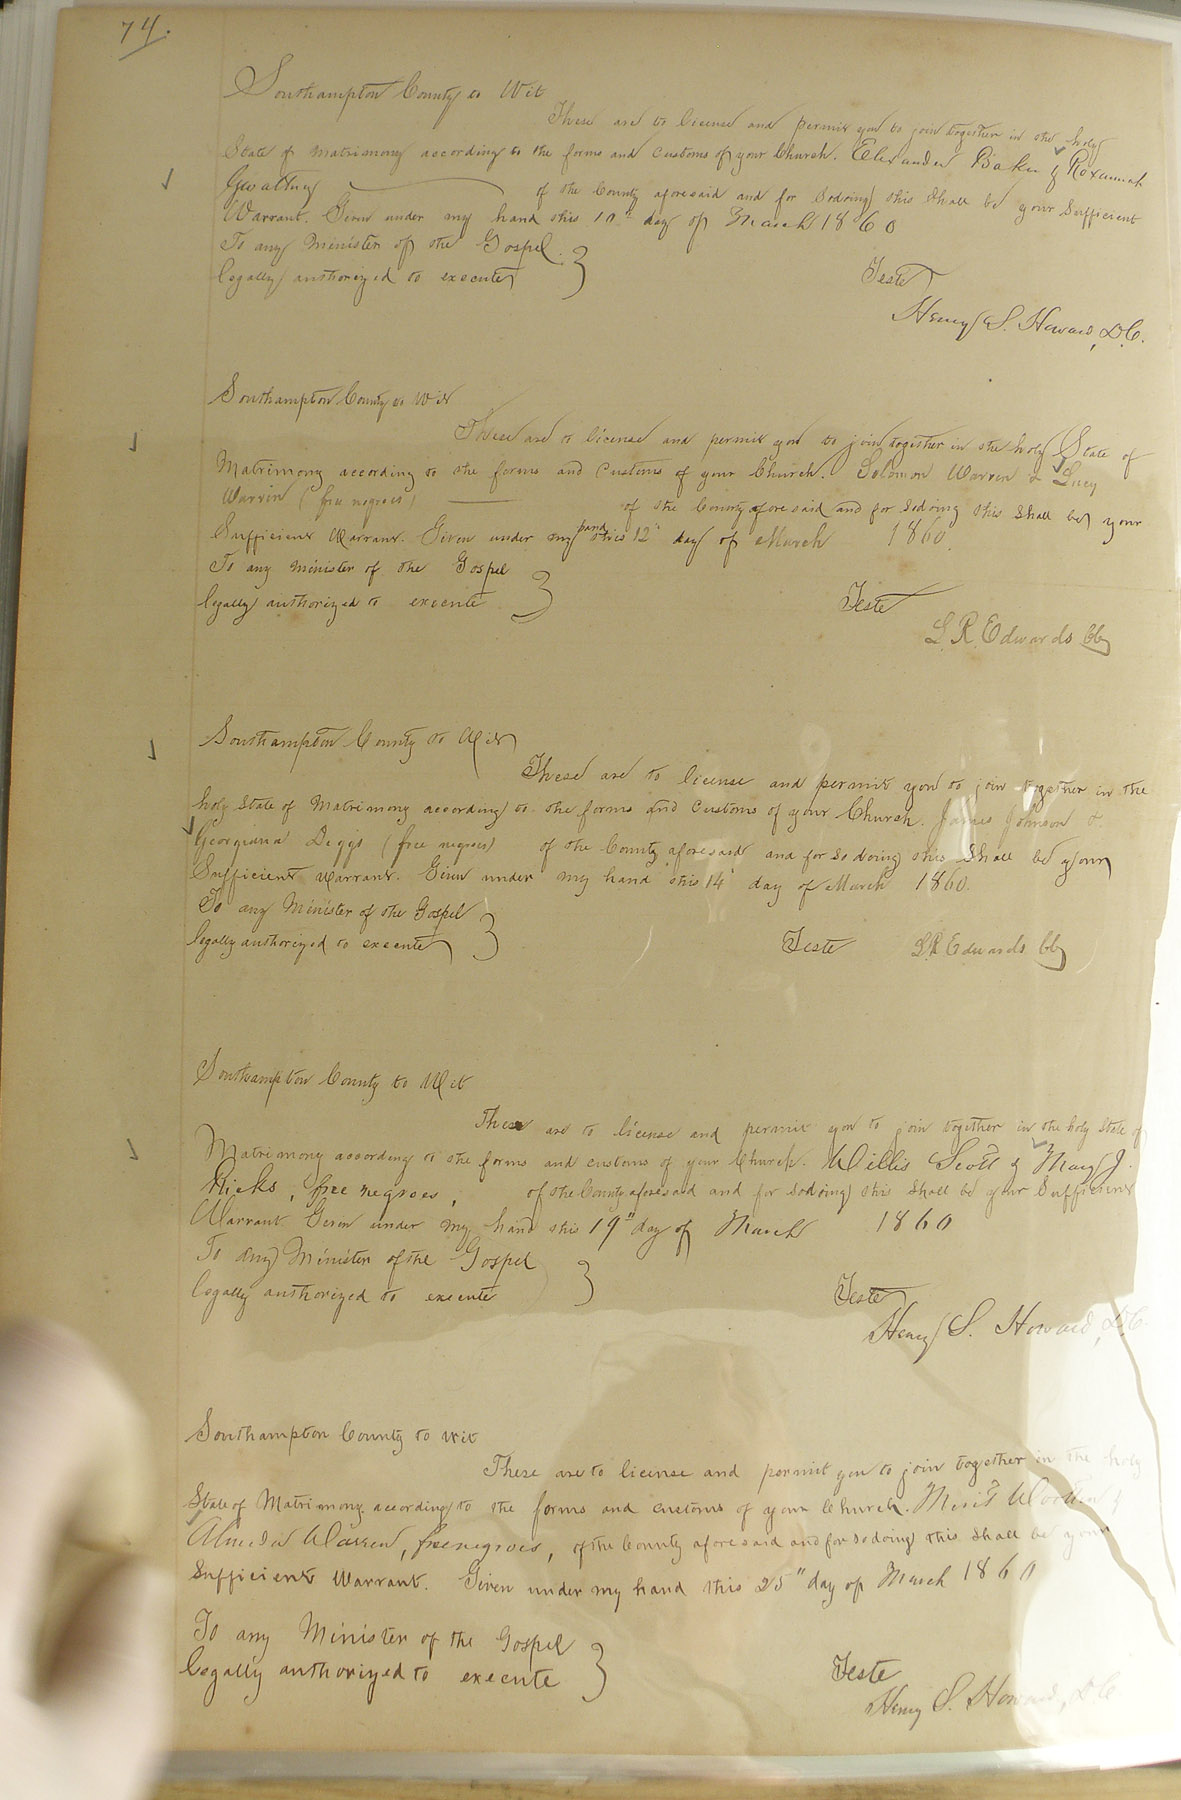 74.
Southampton County to Wit
These are to license and permit you to join together in the holy
State of Matrimony according to the forms and customs of your Church. Elexander Baker & Roxannah
Gwaltney of the County aforesaid and for so doing this shall be your Sufficient
Warrant. Given under my hand this 10th day of March 1860
To any Minister of the Gospel
legally authorized to execute
Teste
Henry S. Howard, D.C.
Southampton County to Wit
These are to license and permit you to join together in the holy State of
Matrimony according to the forms and Customs of your Church. Solomon Warren & Lucy
Warrin (free negroes) of the County aforesaid and for so doing this shall be your
Sufficient Warrant. Given under my hand this 12" day of March 1860.
To any Minister of the Gospel
legally authorized to execute
Teste
L R Edwards Clk
Southampton County to Wit
These are to license and permit you to join together in the
holy State of Matrimony according to the forms and Customs of your Church. James Johnson &
Georgiana Diggs (free negroes) of the County aforesaid and for so doing this Shall be your
Sufficient warrant. Given under my hand this 14" day of March 1860.
To any Minister of the Gospel
legally authorized to execute
Teste L R Edwards Clk
Southampton County to Wit
These are to license and permit you to join together in the holy State of
Matrimony according to the forms and customs of your Church. Willis Scott & Mary J.
Ricks, free negroes, of the County aforesaid and for so doing this shall be your Sufficient
Warrant Given under my hand this 19" day of March 1860
To any Minister of the Gospel
legally authorized to execute
Teste
Henry S. Howard, D.C.
Southampton County to wit
These are to license and permit you to join together in the holy
State of Matrimony according to the forms and customs of your Church. Merit Wootten &
Almeda Warren, free negroes, of the County aforesaid and for so doing this shall be your
Sufficient Warrant. Given under my hand this 25" day of March 1860
To any Minister of the Gospel
legally authorized to execute
Teste
Henry S. Howard, D.C.